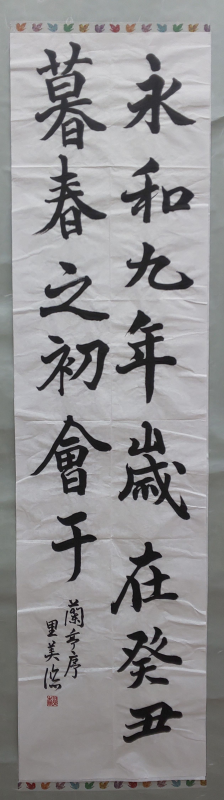 永和九年歳在癸丑
暮春之初會于
蘭亭序
里美臨